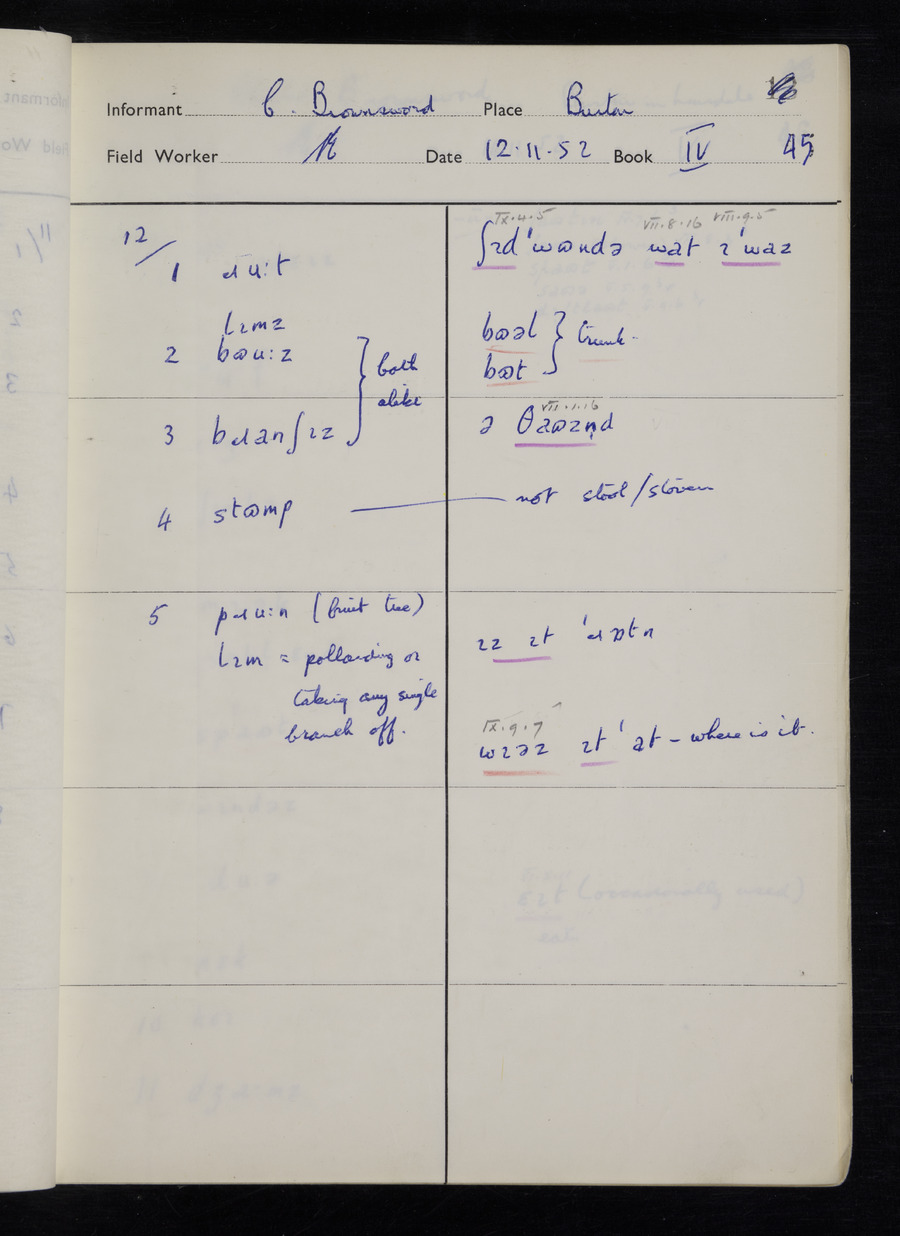 Informant C. Brownsword Place Buxton
Field Worker Date 12.11.52 Book IV 45
IX.4.5 VII.8.16 VIII.9.5
12/1 ɹu:t ʃɪd ˈwɷndə wat ɪˈwaz
lɪmz
2 bɷu:z
3 bɹanʃɪz
} both alike
bɷəl
bɷt
} trunk.
VII.1.16
ə θaɷzn̩d
4 stɷmp — not stool/stoven
5 pɹu:n (fruit tree)
lɪm = pollarding or
taking any single
branch off.
ɪz ɪt ˈɹɒtn
IX.9.7
wɪəz ɪt ˈat – where is it.